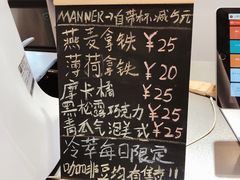 MANNER→自带杯减5元
燕麦拿铁 ¥25
薄荷拿铁 ¥20
摩卡橘 ¥25
黑松露巧克力 ¥25
青木气泡美式 ¥25
冷萃每日限定
咖啡豆均有售!!